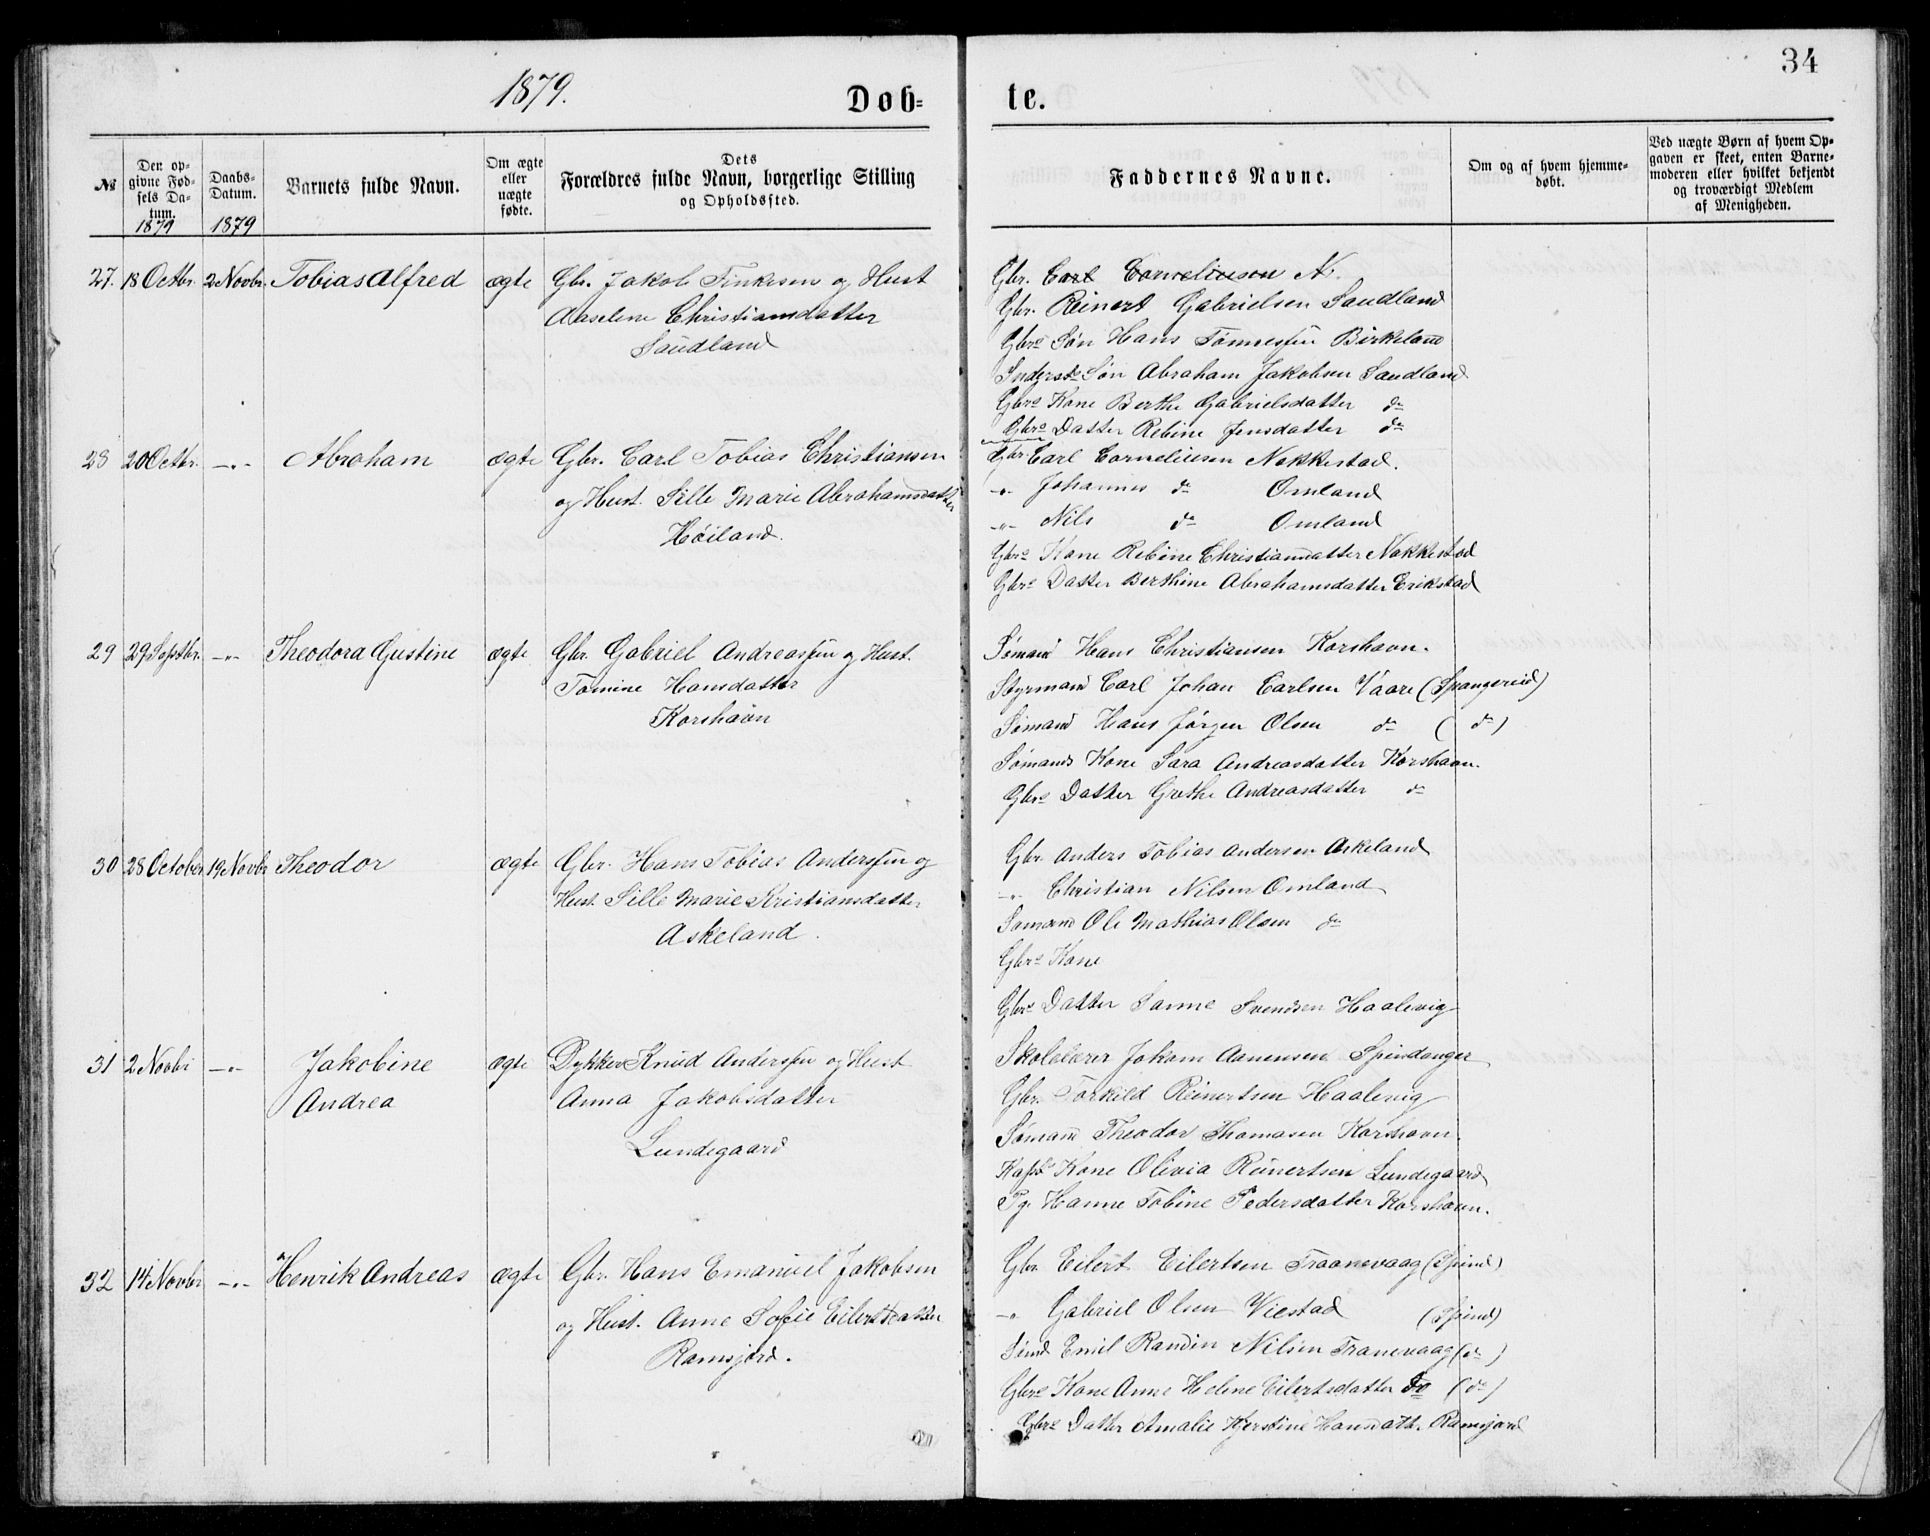 34
1879.
Dob=
te.
№
Den op=
givne Fød=
sels Da=
tum.
1879
Daabs=
Datum.
1879
Barnets fulde Navn.
Om ægte
eller
uægte
fødte.
Dets
Forældres fulde Navn, borgerlige Stilling
og Opholdssted.
Faddernes Navne.
Om og af hvem hjemme=
døbt.
Ved uægte Børn af hvem Op=
gaven er skeet, enten Barne=
moderen eller hvilket bekjendt
og troværdigt Medlem
af Menigheden.
27. 18 Octbr. 2 Novbr. Tobias Alfred ægte Gbr. Jakob Tinkesen og Hust
Aaselene Christiansdatter
Saudland
Gbr. Carl Corneliusen N.
Gbr. Reinert Gabrielsen Saudland
Gbrs Søn Hans Tønnessen Birkeland
Inderste Søn Abraham Jakobsen Saudland
Gbrs Kone Berthe Gabrielsdatter do
Gbrs Datter Rebine Jensdatter do
28 20 Octbr. -"- Abraham ægte Gbr. Carl Tobias Christiansen
og Hust. Sille Marie Abrahamsdatter
Høiland.
Gbr. Carl Corneliusen Nakkestad.
-"- Johannes do Omland
-"- Nils do Omland
Gbrs Kone Rebine Christiansdatter Nakkestad
Gbrs Datter Berthine Abrahamsdatter Erikstad
29 29 Septbr. -"- Theodora Gustine ægte Gbr. Gabriel Andreassen og Hust.
Tomine Hansdatter
Korshavn
Sømand Hans Christiansen Korshavn.
Styrmand Carl Johan Carlsen Vaare (Spangereid)
Sømand Hans Jørgen Olsen do ( do )
Sømands Kone Sara Andreasdatter Korshavn.
Gbrs Datter Grethe Andreasdatter do
30 28 October 19 Novbr Theodor ægte Gbr. Hans Tobias Anderssen og
Hust. Sille Marie Kristiansdatter
Askeland.
Gbr. Anders Tobias Andersen Askeland
-"- Christian Nilsen Omland
Sømand Ole Mathias Olsen do
Gbrs Kone
Gbrs Datter Sanne Svendsen Haalevig
31 2 Novbr -"- Jakobine
Andrea
ægte Dykker Knud Anderssen og Hust
Anna Jakobsdatter
Lundegaard
Skolelærer Jokom Aanensen Spindanger
Gbr. Torkild Reinertsen Haalevig
Sømand Theodor Thomasen Korshavn.
Kapts Kone Olivia Reinertsen Lundegaard
Pg. Hanne Tobine Pedersdatter Korshavn.
32 14 Novbr -"- Henrik Andreas ægte Gbr. Hans Emanuel Jakobsen
og Hust. Anne Sofie Eilertsdatter
Ramsjord.
Gbr Eilert Eilertsen Traanevaag (Spind)
-"- Gabriel Olsen Viestad (Spind)
Sømd Emil Randin Nilsen Tranevaag (do)
Gbrs Kone Anne Helene Eilertsdatter do (do)
Gbrs Datter Amalie Kjerstine Hansdattr. Ramsjord